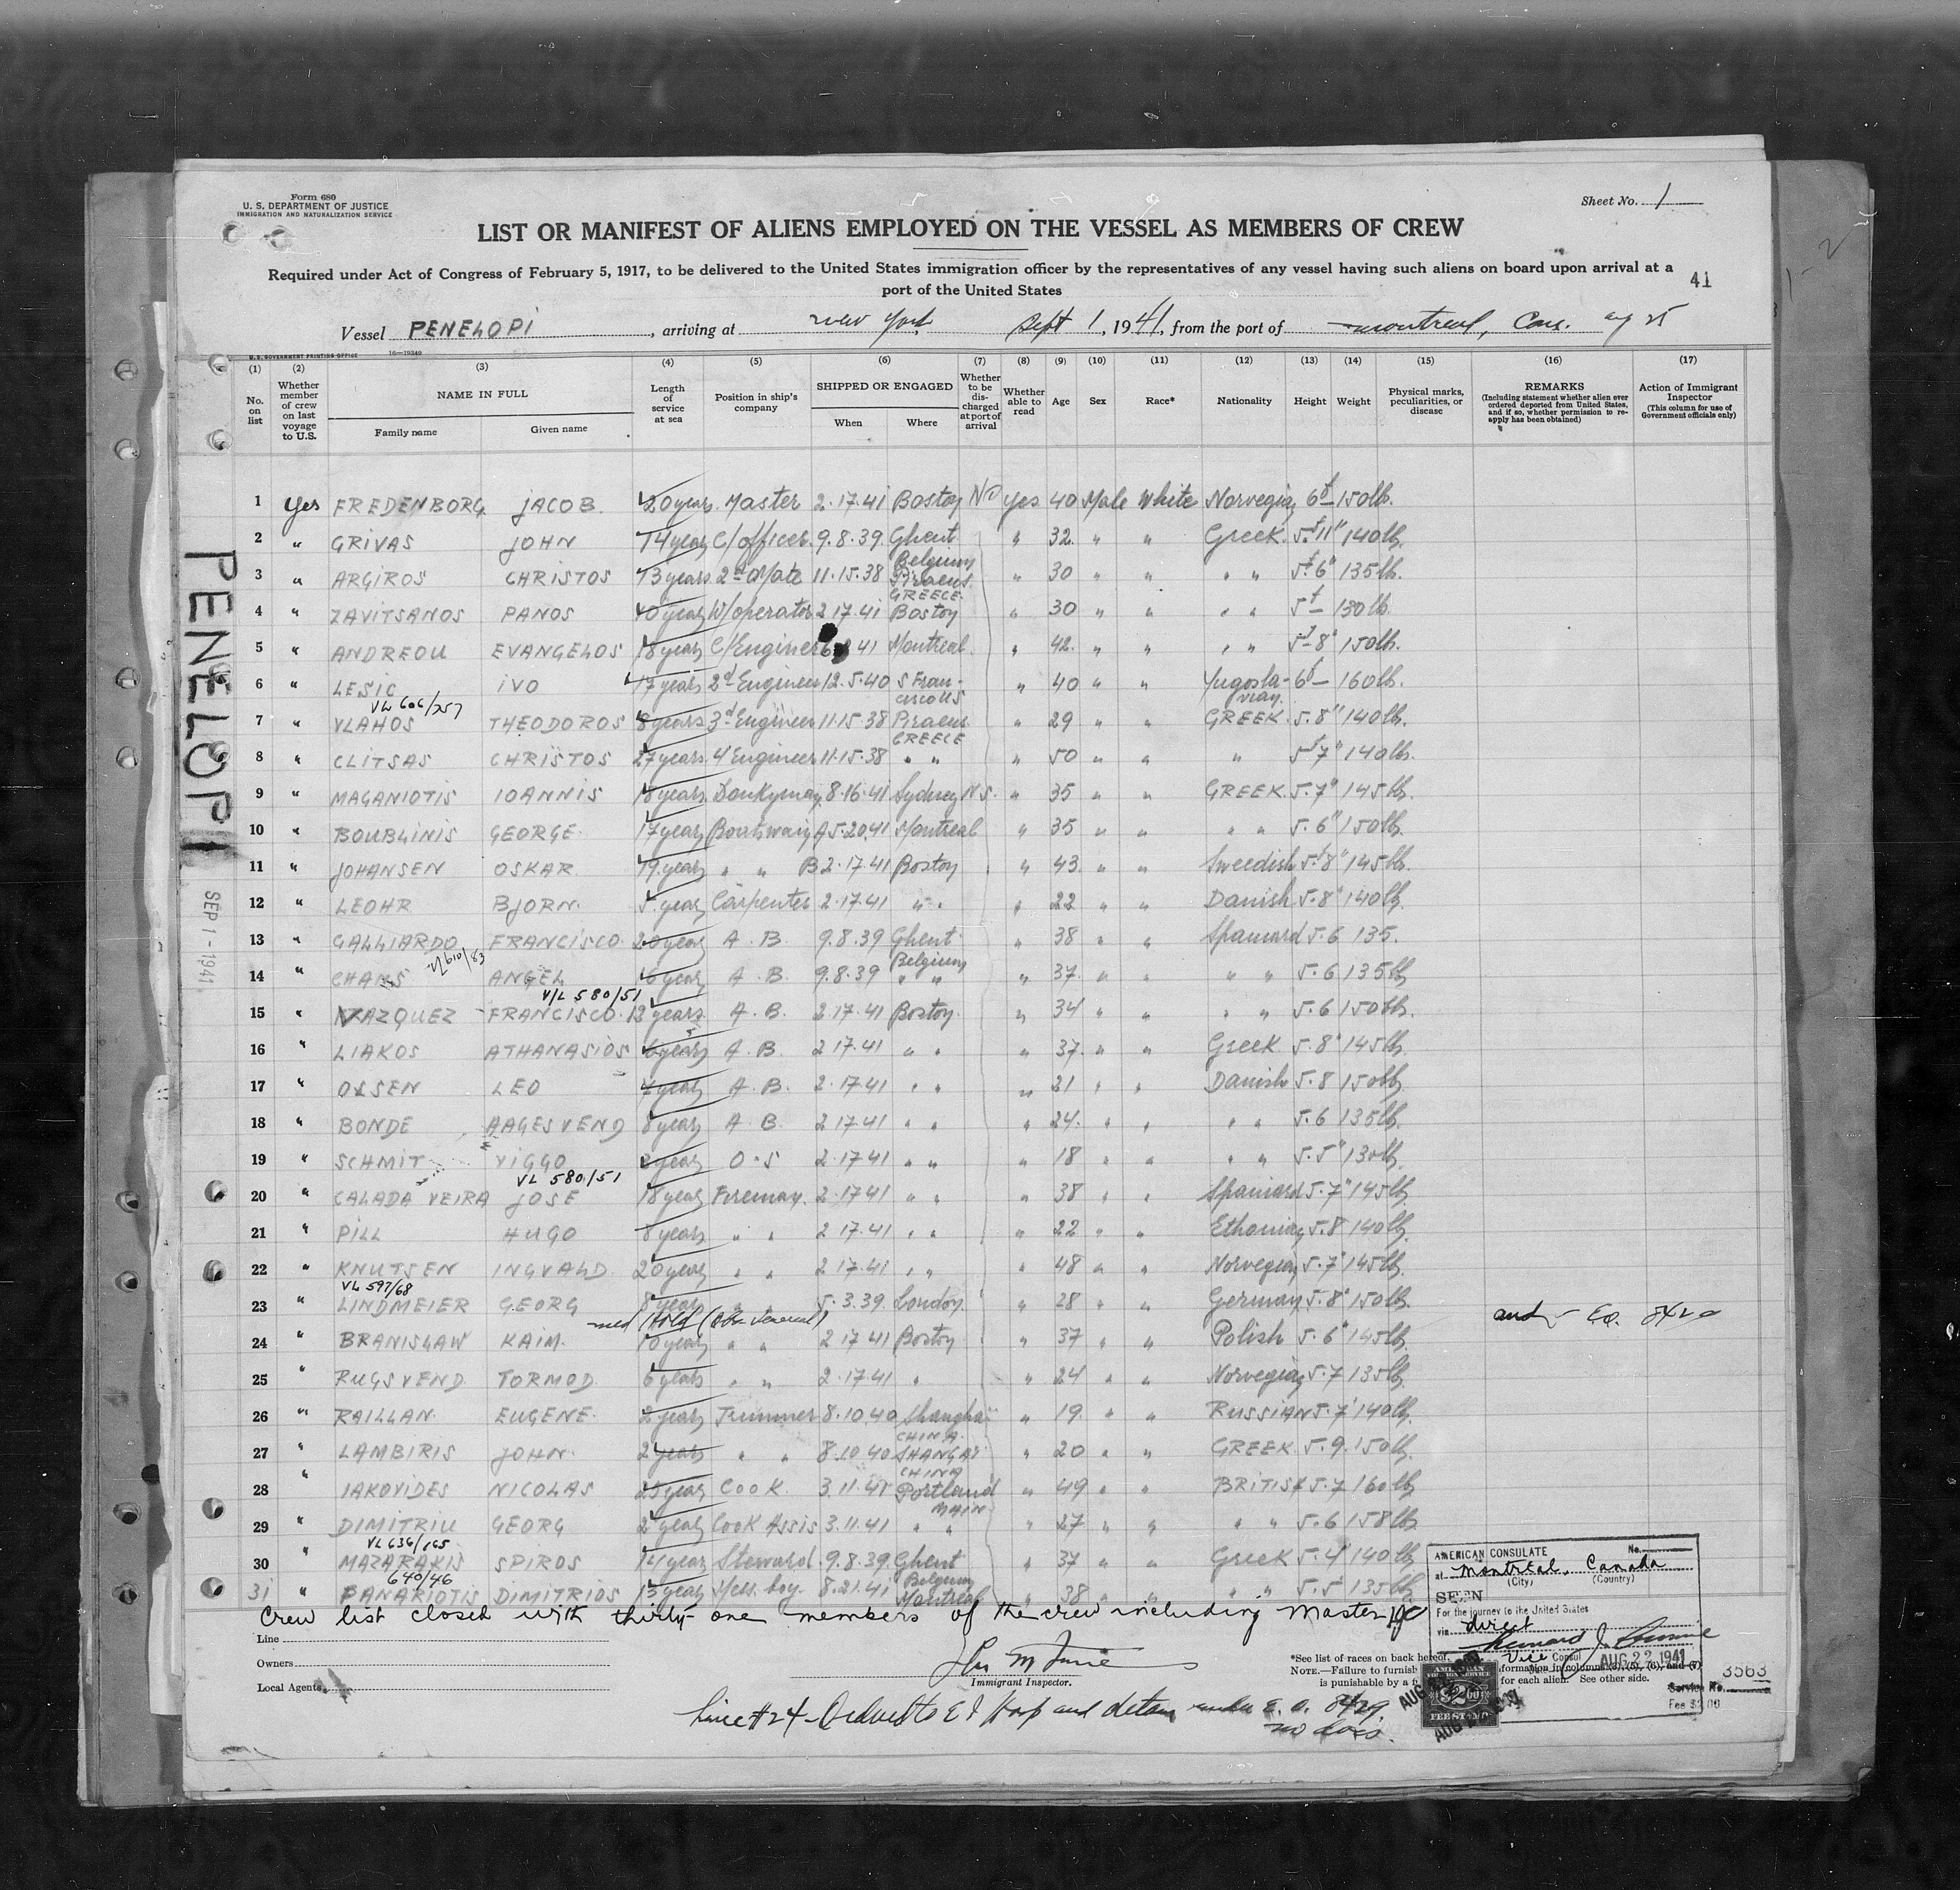 Form 680
U. S. DEPARTMENT OF JUSTICE
IMMIGRATION AND NATURALIZATION SERVICE
Sheet No. 1
LIST OR MANIFEST OF ALIENS EMPLOYED ON THE VESSEL AS MEMBERS OF CREW
Required under Act of Congress of February 5, 1917, to be delivered to the United States immigration officer by the representatives of any vessel having such aliens on board upon arrival at a
port of the United States
41
Vessel PENELOPI, arriving at new york Sept 1, 1941, from the port of montreal, Can. ag 25
U. S. GOVERNMENT PRINTING OFFICE 16—19349
(1) No. on list
(2) Whether member of crew on last voyage to U.S.
(3) NAME IN FULL Family name Given name
(4) Length of service at sea
(5) Position in ship's company
(6) SHIPPED OR ENGAGED When Where
(7) Whether to be discharged at port of arrival
(8) Whether able to read
(9) Age
(10) Sex
(11) Race*
(12) Nationality
(13) Height
(14) Weight
(15) Physical marks, peculiarities, or disease
(16) REMARKS (Including statement whether alien ever ordered deported from United States, and if so, whether permission to reapply has been obtained)
(17) Action of Immigrant Inspector (This column for use of Government officials only)
1 Yes FREDENBORG JACOB. 20 years Master 2.17.41 Boston No Yes 40 Male White Norvegian 6f— 150lb.
2 " GRIVAS JOHN 14 years C/officer 9.8.39. Ghent Belgium " 32. " " Greek. 5f11" 140lb.
3 " ARGIROS CHRISTOS 13 years 2d Mate 11.15.38 Piraeus GREECE. " 30 " " " " 5f6" 135lb.
4 " ZAVITSANOS PANOS 10 years W/operator 2 17.41 Boston " 30 " " " " 5f— 130lb.
5 " ANDREOU EVANGELOS 18 years C/Enginer 41 Montreal. " 42. " " " " 5f8" 150lb.
6 " LESIC IVO 17 years 2d Engineer 12.5.40 S Franciscous " 40 " " Yugoslavian. 6f— 160lb.
VL 606/257
7 " VLAHOS THEODOROS 8 years 3d Engineer 11.15.38 Piraeus GREECE " 29 " " GREEK. 5.8" 140lb.
8 " CLITSAS CHRISTOS 27 years 4 Engineer 11.15.38 " " " 50 " " " 5f7" 140lb.
9 " MAGANIOTIS IOANNIS 18 years Donkyman 8.16.41 Sydney N.S. " 35 " " GREEK. 5.7" 145lb.
10 " BOUBLINIS GEORGE. 17 years Boatswain A 5.20.41 Montreal " 35 " " " " 5.6" 150lb.
11 " JOHANSEN OSKAR 19 years " " B 2.17.41 Boston " 43. " " Sweedish 5f8" 145lb.
12 " LEOHR BJORN. 5 years Carpenter 2.17.41 " " " 22 " " Danish 5.8" 140lb.
13 " GALLIARDO FRANCISCO. 20 years A.B. 9.8.39 Ghent Belgium " 38 " " Spaniard 5.6 135.
VL 610/83
14 " ANGEL 6 years A.B. 9.8.39 " " " 37. " " " " 5.6 135lb
V/L 580/51
15 " VAZQUEZ FRANCISCO. 12 years A.B. 2.17.41 Boston. " 34 " " " " 5.6 150lb.
16 " LIAKOS ATHANASIOS 6 years A.B. 2 17.41 " " " 37. " " Greek 5.8" 145lb.
17 " OLSEN LEO 4 years A.B. 2.17.41 " " " 21 " " Danish 5.8 150lb
18 " BONDE AAGESVEND 8 years A.B. 2 17.41 " " " 24. " " " " 5.6 135lb.
19 " SCHMIT VIGGO 2 years O.S 2.17.41 " " " 18 " " " " 5.5" 130lb.
VL 580/51
20 " CALADA VEIRA JOSE 18 years Fireman. 2.17.41 " " " 38 " " Spaniard 5.7" 145lb.
21 " PILL HUGO 8 years " " 2 17.41 " " " 22 " " Ethonian 5.8 140lb.
22 " KNUTSEN INGVALD 20 years " " 2 17.41 " " " 48 " " Norvegian 5.7" 145lb.
VL 597/68
23 " LINDMEIER GEORG 8 years " " 5.3.39. London. " 28 " " German 5.8" 150lb.
med Hold
24 " BRANISLAW KAIM. 10 years " " 2 17 41 Boston " 37 " " Polish 5.6" 145lb.
25 " RUGSVEND TORMOD 6 years " " 2.17.41 " " 24 " " Norvegian 5.7 135lb.
26 " RAILLAN. EUGENE. 2 years Trimmer 8.10.40 Shanghai CHINA. " 19. " " RUSSIAN 5.7" 140lb.
27 " LAMBIRIS JOHN 2 years " " 8.10.40 SHANGAI CHINA " 20 " " GREEK 5.9. 150lb
28 " IAKOVIDES NICOLAS 25 years COOK. 3.11.41 Portland MAIN " 49 " " BRITISH 5.7 160lb
29 " DIMITRIU GEORG 2 years COOK Assis 3.11.41 " " " 27 " " " " 5.6 158lb
VL 636/165
30 " MAZARAKIS SPIROS 14 years Steward. 9.8.39. Ghent Belgium " 37 " " Greek 5.4" 140lb
640/46
31 " PANARIOTIS DIMITRIOS 13 years Mess. boy. 8.21.41 Montreal " 38 " " " " 5.5" 135lb
Crew list closed with thirty-one members of the crew including Master
Line
Owners
Local Agents
Immigrant Inspector.
*See list of races on back hereof.
NOTE.—Failure to furnish information in columns (3), (5), (6), and (7)
is punishable by a for each alien. See other side.
Line #24 - Ordered to E I Hosp and detain under E. O. 8429.
no docs.
AMERICAN CONSULATE No.
at Montreal, Canada
(City) (Country)
SEEN
For the journey to the United States
via direct
Vice Consul
AUG 22 1941
Service No. 3563
Fee $2.00
AMERICAN FOREIGN SERVICE
$2.00
FEE STAMP
PENELOPI
SEP 1 - 1941